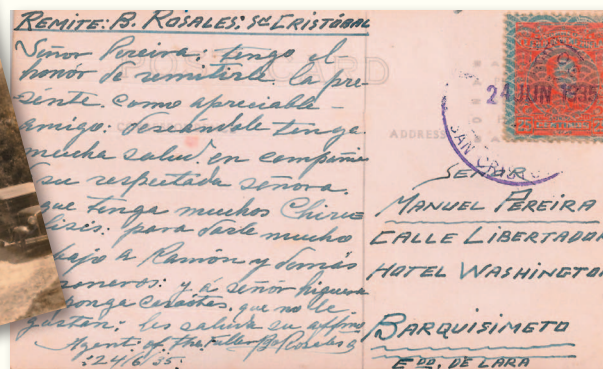 REMITE: B. ROSALES: Sn CRISTÓBAL
Señor Pereira: tengo el
honór de remitirle la pre-
sente como apreciable
amigo: deseándole tenga
mucha salud en compañia
su respetada señora.
que tenga muchos
para darle mucho
bajo a Ramón y demás
soneros: y á señor higuera
ponga que no le
gustan: les saluda su affmo
Agent of the B Rosales
24/6 35.
POST CARD
ADDRESS
24 JUN 1935
SAN CRIS
SEÑOR
MANUEL PEREIRA
CALLE LIBERTADOR
HOTEL WASHINGTON
BARQUISIMETO
EDO. DE LARA